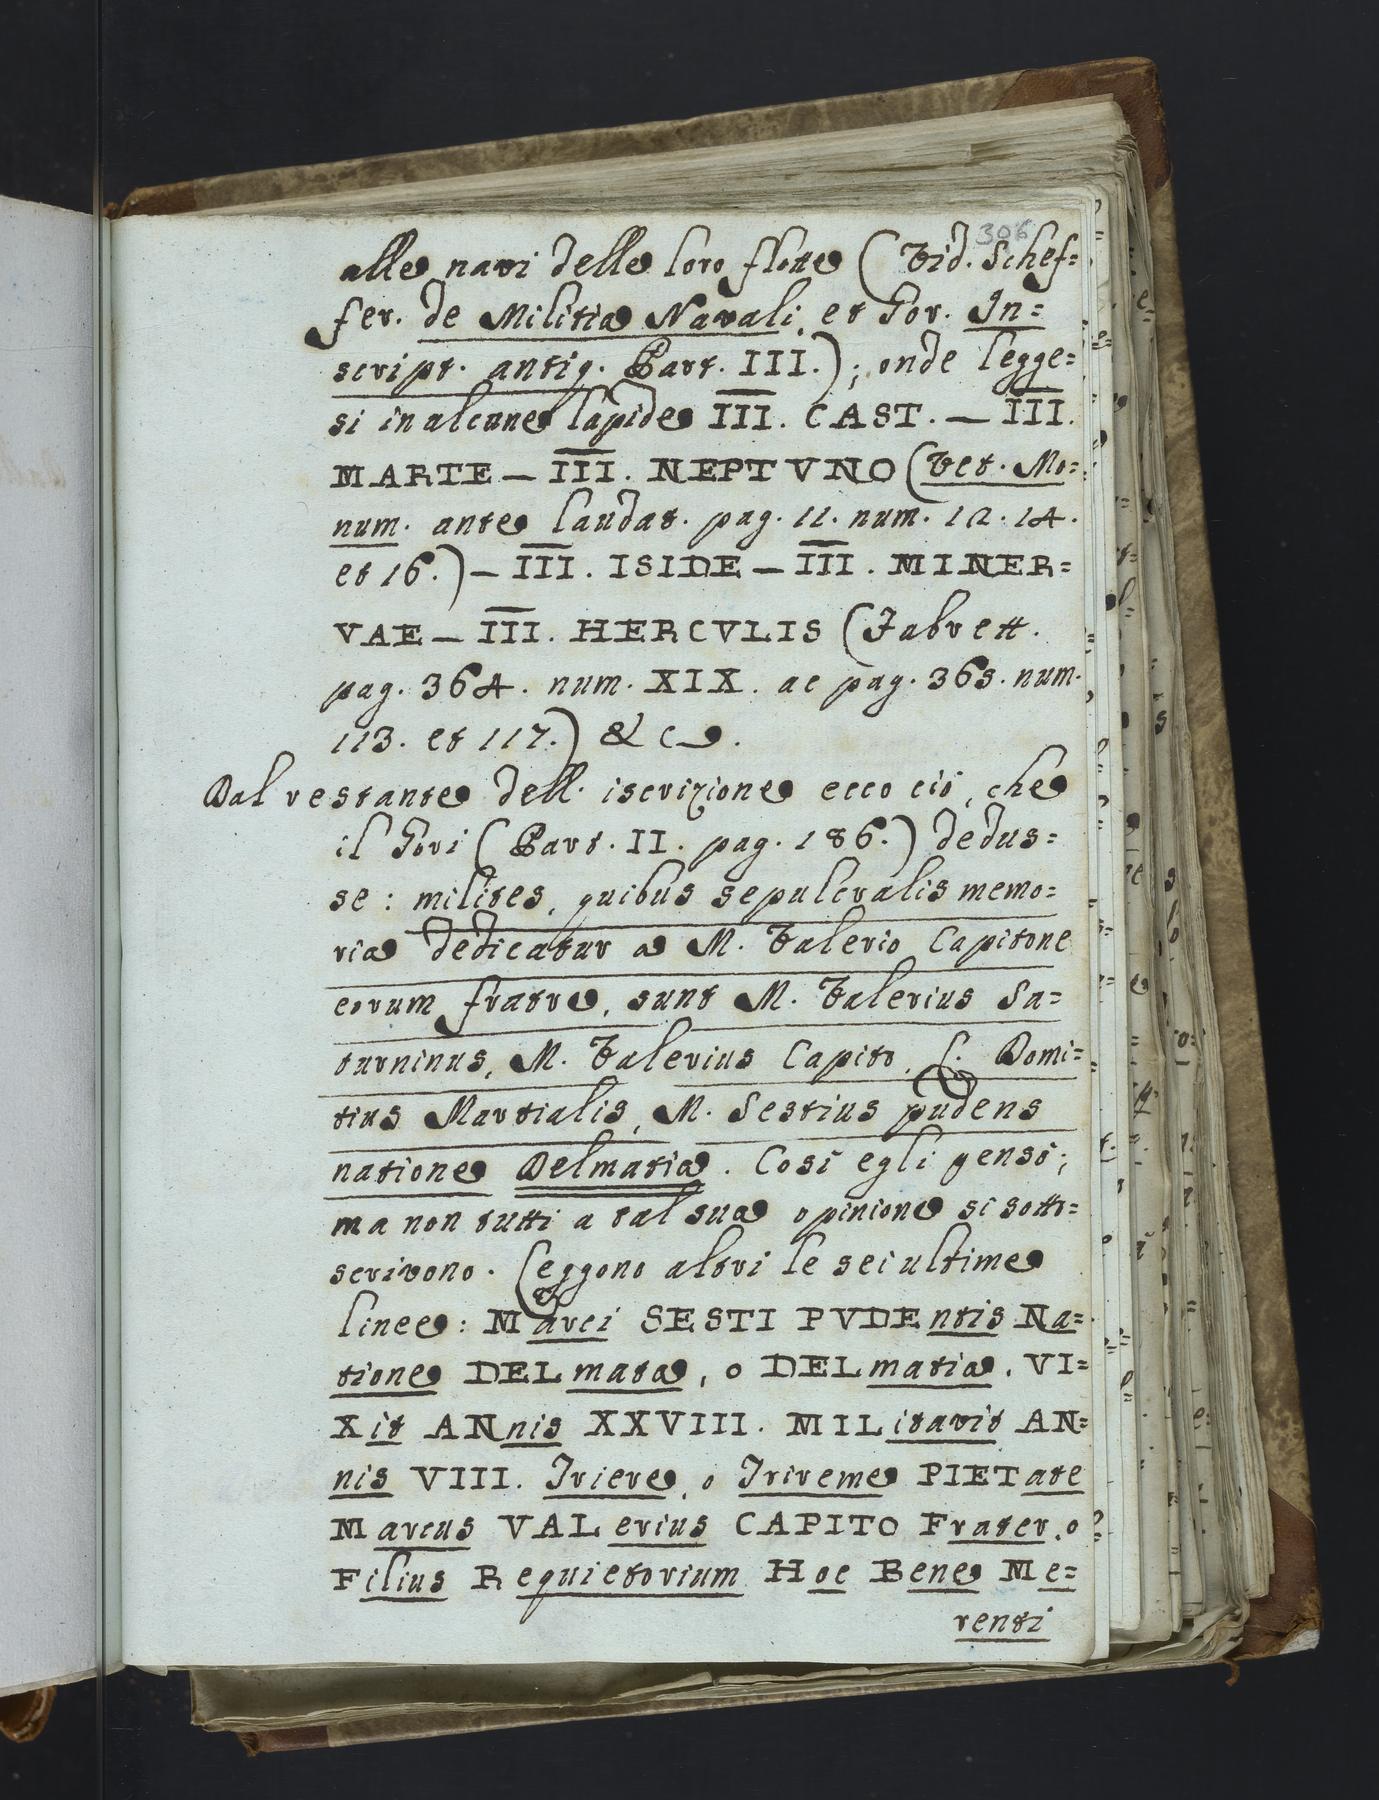 306
alle navi delle loro flotte (Vid. Schef=
fer. de Militia Navali, et Gor. In=
script. antiq. Part. III.); onde legge=
si in alcune lapide III. CAST. — III.
MARTE — III. NEPTVNO (Vet. Mo=
num. ante laudat. pag. 11. num. 12. 14.
et 16.) — III. ISIDE — III. MINER=
VAE — III. HERCVLIS (Fabrett.
pag. 364. num. XIX. ac pag. 363. num.
113. et 117.) & c.
Dal restante dell' iscrizione ecco ciò, che
il Gori (Part. II. pag. 186.) dedus=
se: milites, quibus sepulcralis memo=
ria dedicatur a M. Valerio Capitone
eorum fratre, sunt M. Valerius Sa=
turninus, M. Valerius Capito, L. Domi=
tius Martialis, M. Sestius pudens
natione Delmatia. Così egli pensò;
ma non tutti a tal sua opinione si sotto=
scrivono. Leggono altri le sei ultime
linee: Marci SESTI PVDEntis Na=
tione DELmata, o DELmatia. VI=
Xit ANnis XXVIII. MILitavit AN=
nis VIII. Triere, o Trireme PIETate
Marcus VALerius CAPITO Frater, o
Filius Requietorium Hoc Bene Me=
renti